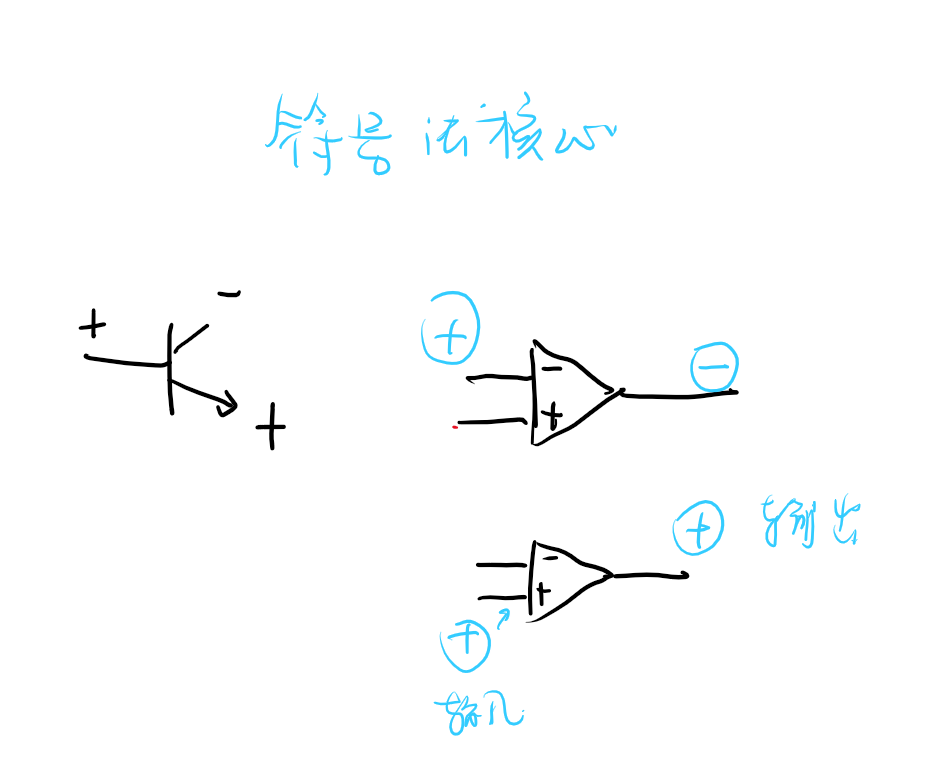 符号法核心
-
+
+
+
-
-
+
+ 输出
-
+
+
输入